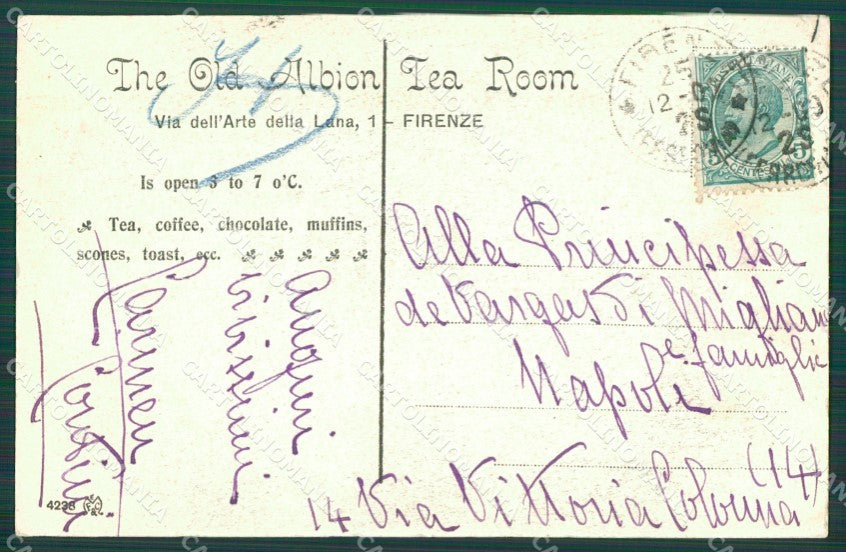 The Old Albion Tea Room
Via dell'Arte della Lana, 1 - FIRENZE
Is open 3 to 7 o'C.
Tea, coffee, chocolate, muffins,
scones, toast, ecc.
Auguri
Carmen
Alla Principessa
de Vargas di Migliano
e famiglie
Napoli
(14)
14 Via Vittoria Colonna
4238
CARTOLINOMANIA